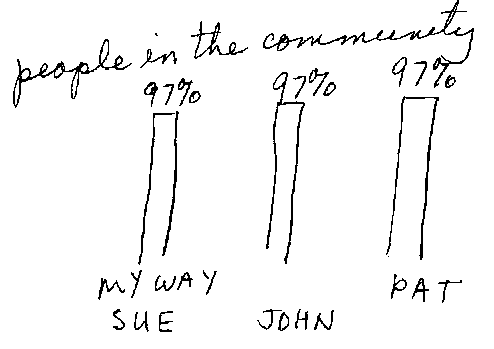 people in the community
97% 97% 97%
MY WAY PAT
SUE JOHN